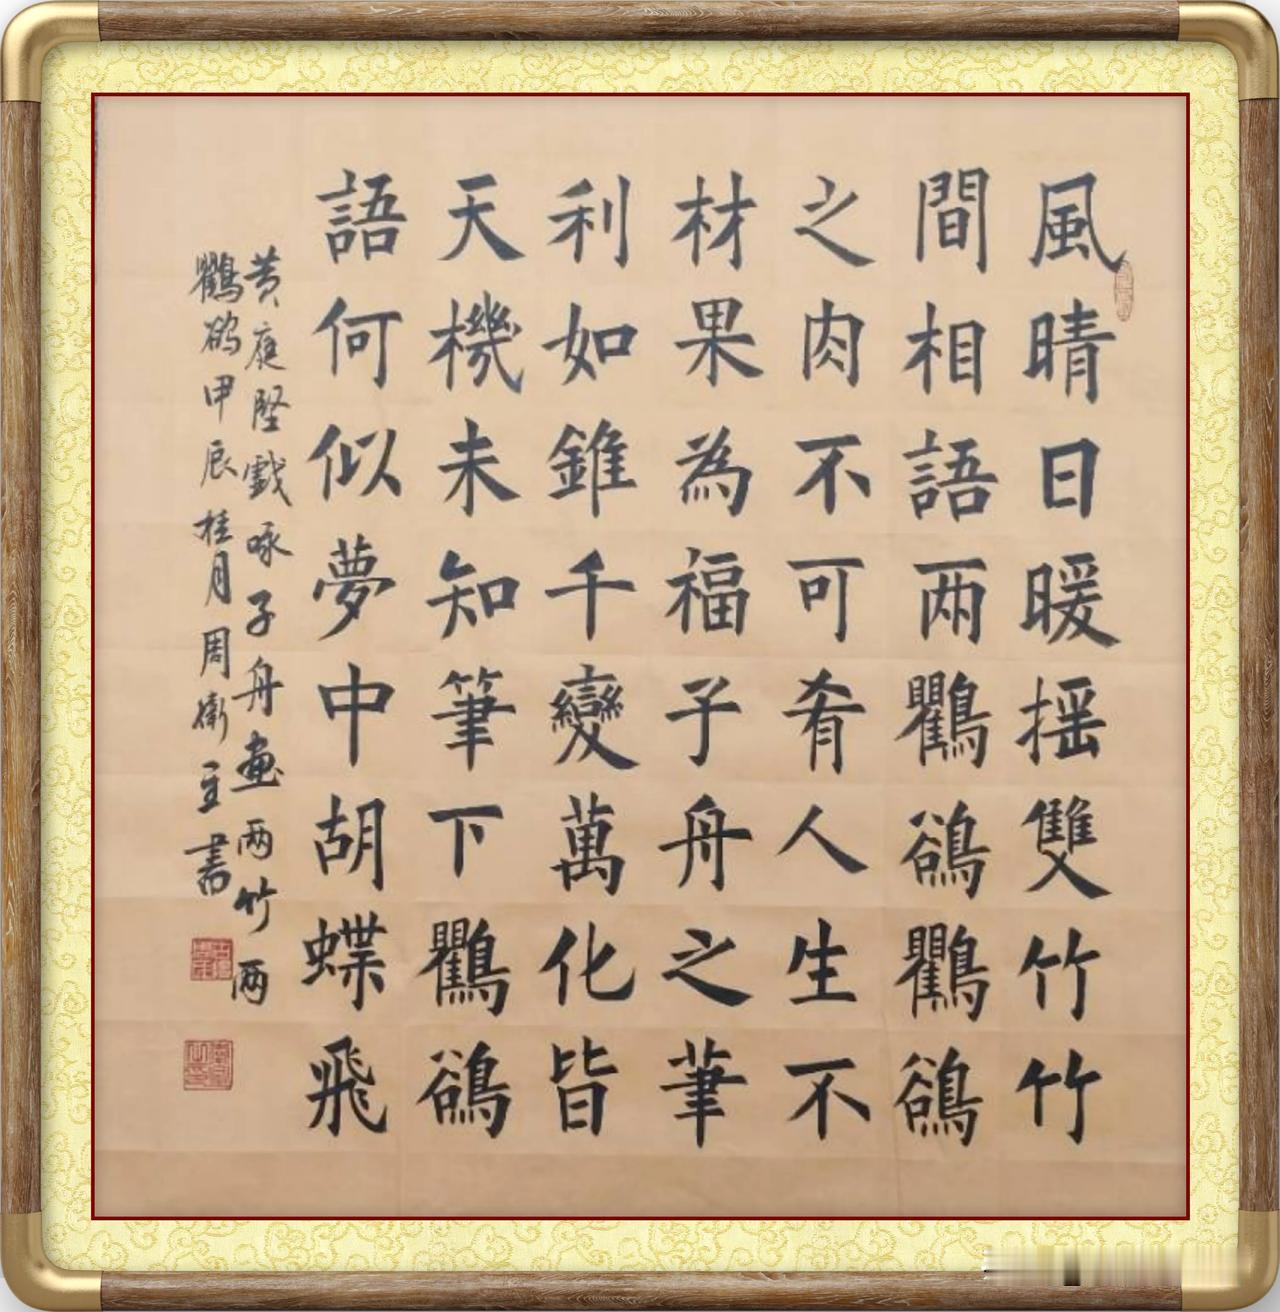 風晴日暖摇雙竹竹
間相語兩鸜鵒鸜鵒
之肉不可肴人生不
材果為福子舟之筆
利如錐千變萬化皆
天機未知筆下鸜鵒
語何似夢中胡蝶飛
黄庭堅戲咏子舟畫兩竹兩
鸜鵒甲辰桂月周衛主書